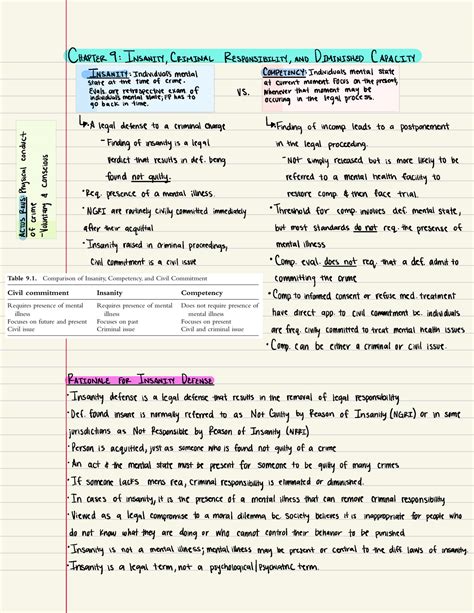 CHAPTER 9: INSANITY, CRIMINAL RESPONSIBILITY, AND DIMINISHED CAPACITY
INSANITY: Individual's mental
state at the time of crime.
Evals are retrospective exam of
individual's mental state; FP has to
go back in time.
VS.
COMPETENCY: Individual's mental state
at current moment. Focus on the present,
whenever that moment may be
occuring in the legal process.
Actus Reus: Physical conduct
of crime
-Voluntary & Conscious
↳A legal defense to a criminal charge
-Finding of insanity is a legal
verdict that results in def. being
found not guilty.
•Req. presence of a mental illness.
•NGRI are routinely civilly committed immediately
after their acquittal
•Insanity raised in criminal proceedings,
Civil commitment is a civil issue
↳Finding of incomp leads to a postponement
in the legal proceeding.
-Not simply released but is more likely to be
referred to a mental health facility to
restore comp. & then face trial.
•Threshold for comp. involves def mental state,
but most standards do not req. the presense of
mental illness
•Comp. eval. does not req. that a def. admit to
committing the crime
•Comp to informed consent or refuse med. treatment
have direct app. to civil commitment bc. individuals
are freq. civilly committed to treat mental health issues
•Comp. can be either a criminal or civil issue.
Table 9.1. Comparison of Insanity, Competency, and Civil Commitment
Civil commitment Insanity Competency
Requires presence of mental illness Requires presence of mental illness Does not require presence of mental illness
Focuses on future and present Focuses on past Focuses on present
Civil issue Criminal issue Civil and criminal issue
RATIONALE FOR INSANITY DEFENSE
•Insanity defense is a legal defense that results in the removal of legal responsibility
•Def. found insane is normally referred to as Not Guilty by Reason of Insanity (NGRI) or in some
jurisdictions as Not Responsible by Reason of Insanity (NRRI)
•Person is acquitted, just as someone who is found not guilty of a crime
•An act & the mental state must be present for someone to be guilty of many crimes
•If someone lacks mens rea, criminal responsibility is eliminated or diminished.
•In cases of insanity, it is the presence of a mental illness that can remove criminal responsibility
•Viewed as a legal compromise to a moral dilemma bc society believes it is inappropriate for people who
do not know what they are doing or who cannot control their behavior to be punished
•Insanity is not a mental illness; mental illness may be present or central to the diff. laws of insanity.
•Insanity is a legal term, not a psychological/Psychiatric term.